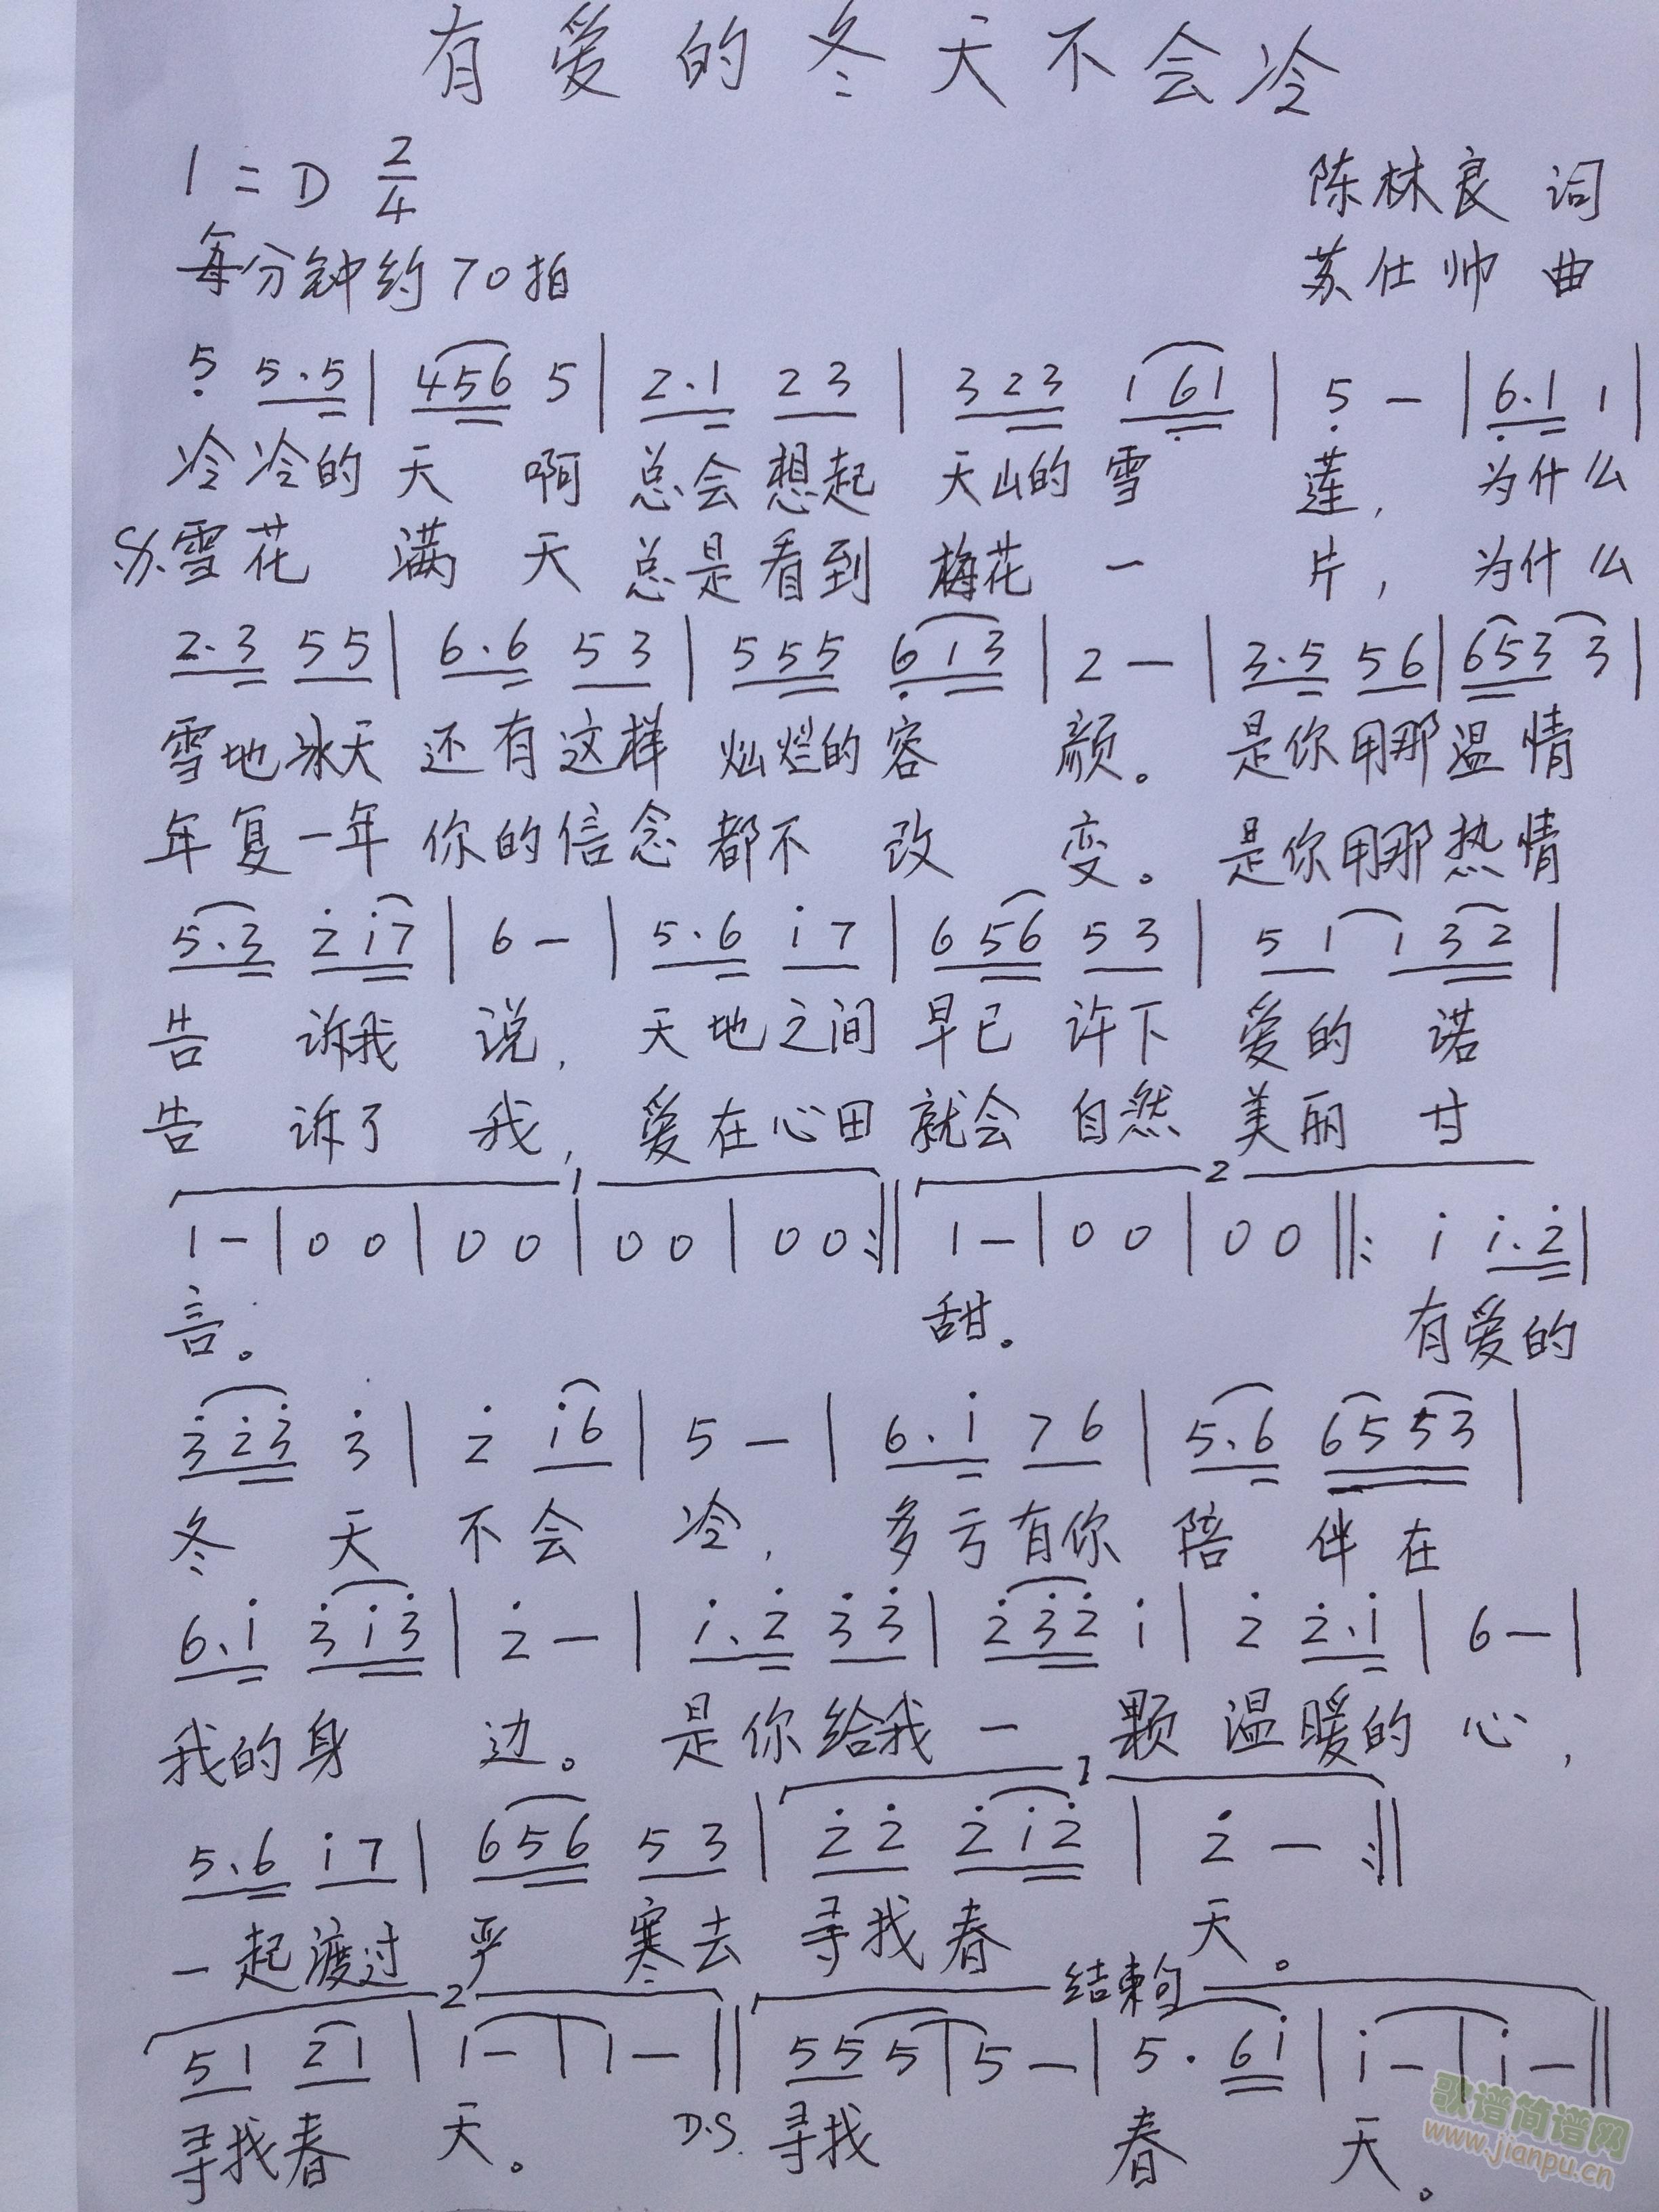 有爱的冬天不会冷
1=D 2/4
陈林良 词
每分钟约70拍
苏仕帅 曲
5 5.5 | 456 5 | 2.1 23 | 323 161 | 5 - | 6.1 1 |
冷冷的天 啊 总会想起 天山的雪 莲, 为什么
雪花 满 天 总是看到 梅花 一 片, 为什么
2.3 55 | 6.6 53 | 555 613 | 2 - | 3.5 56 | 653 3 |
雪地冰天 还有这样 灿烂的容 颜。 是你用那温情
年复一年 你的信念 都不 改 变。 是你用那热情
5.3 217 | 6 - | 5.6 17 | 656 53 | 51 132 |
告 诉我 说, 天地之间 早已 许下 爱的 诺
告 诉了 我, 爱在心田 就会 自然 美丽 甘
1 2
1 - | 0 0 | 0 0 | 0 0 | 0 0 :‖ 1 - | 0 0 | 0 0 ‖: 1 1.2 |
言。 甜。 有爱的
323 3 | 2 16 | 5 - | 6.1 76 | 5.6 6553 |
冬 天 不会 冷, 多亏有你 陪 伴在
6.1 313 | 2 - | 1.2 33 | 232 1 | 2 2.1 | 6 - |
我的身 边。 是你给我 一 颗 温暖的 心,
1
5.6 17 | 656 53 | 22 212 | 2 - :‖
一起渡过 严 寒去 寻找春 天。
2 结束句
51 21 | 1 - | 1 - ‖ 55 5 | 5 - | 5. 61 | 1 - | 1 - ‖
寻找春 天。 D.S. 寻找 春 天。
歌谱简谱网
www.jianpu.cn